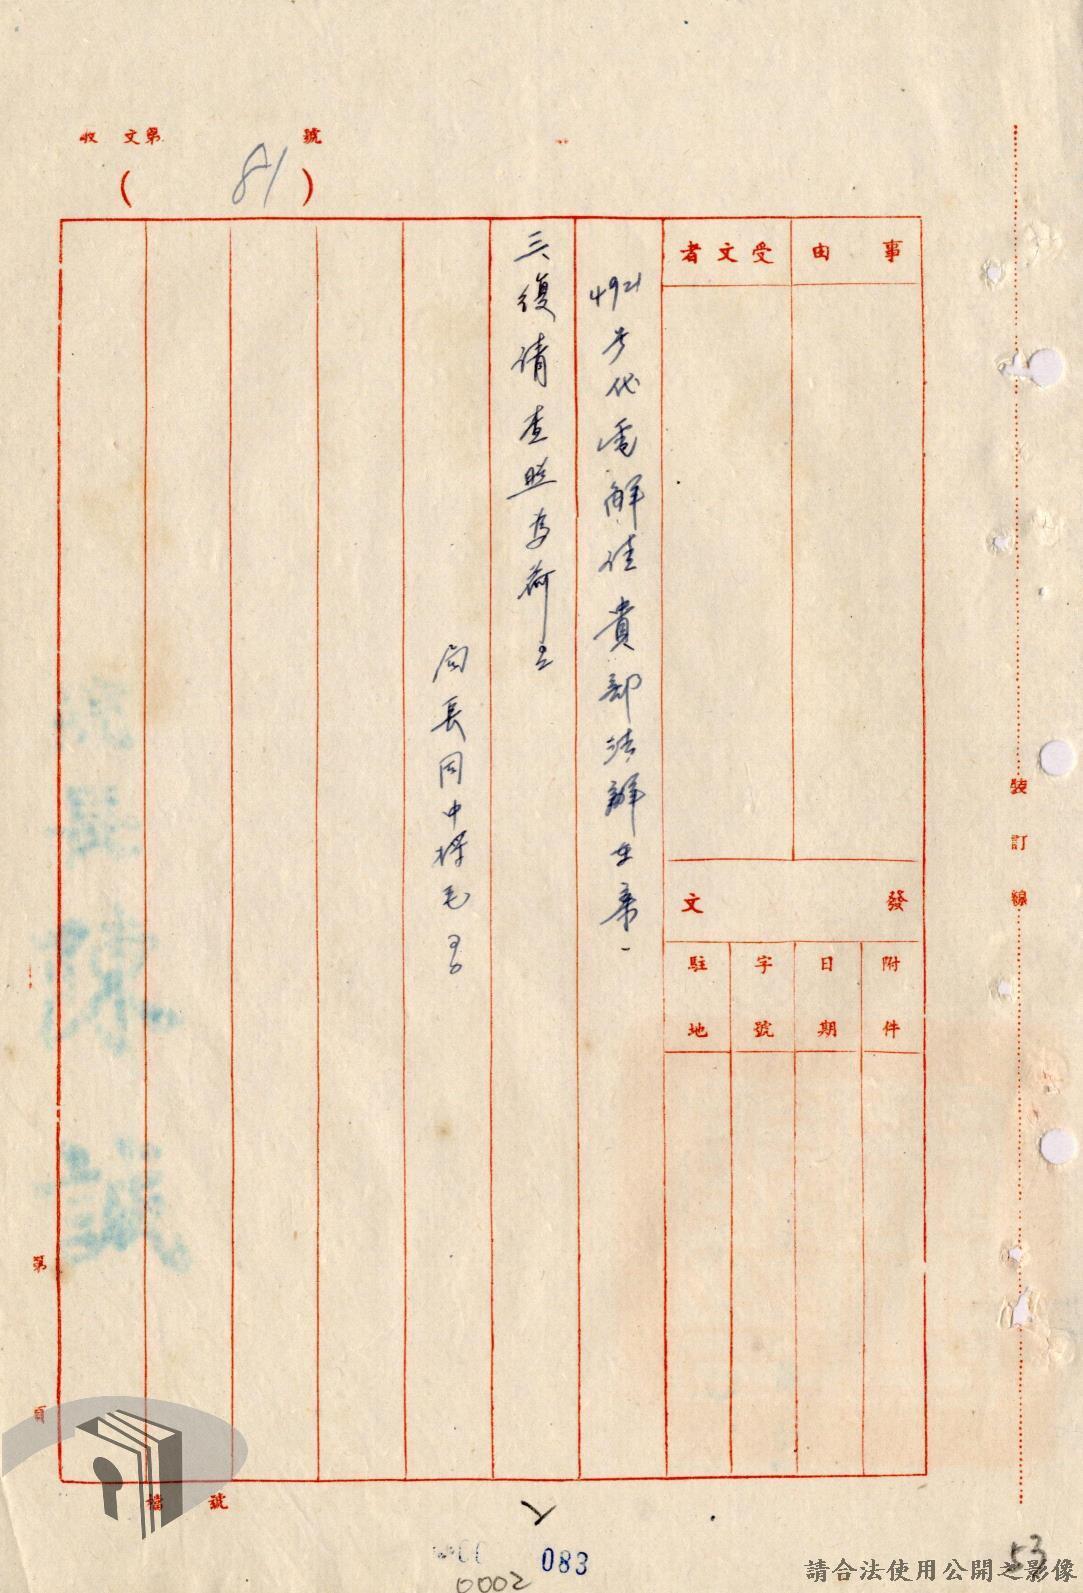 收文第 號
(81)
事由
受文者
發文
附件
日期
字號
駐地
4921号代電解往貴部法辦在案一
三、復請查照為荷
局長周中樑毛
裝訂線
第 頁
檔 號
083
0002
53
請合法使用公開之影像